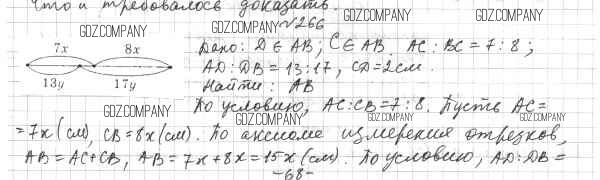 что и требовалось доказать.
GDZ.COMPANY
GDZ.COMPANY
GDZ.COMPANY
GDZ.COMPANY
№266
7x 8x
13y 17y
Дано: D ∈ AB; C ∈ AB. AC : BC = 7 : 8;
AD : DB = 13 : 17, CD = 2см.
GDZ.COMPANY
GDZ.COMPANY
Найти: AB
GDZ.COMPANY
По условию, AC:CB=7:8. Пусть AC=
GDZ.COMPANY
GDZ.COMPANY
GDZ.COMPANY
=7x (см), CB=8x(см). По аксиоме измерения отрезков,
AB=AC+CB, AB=7x+8x=15x(см). По условию, AD:DB=
-68-